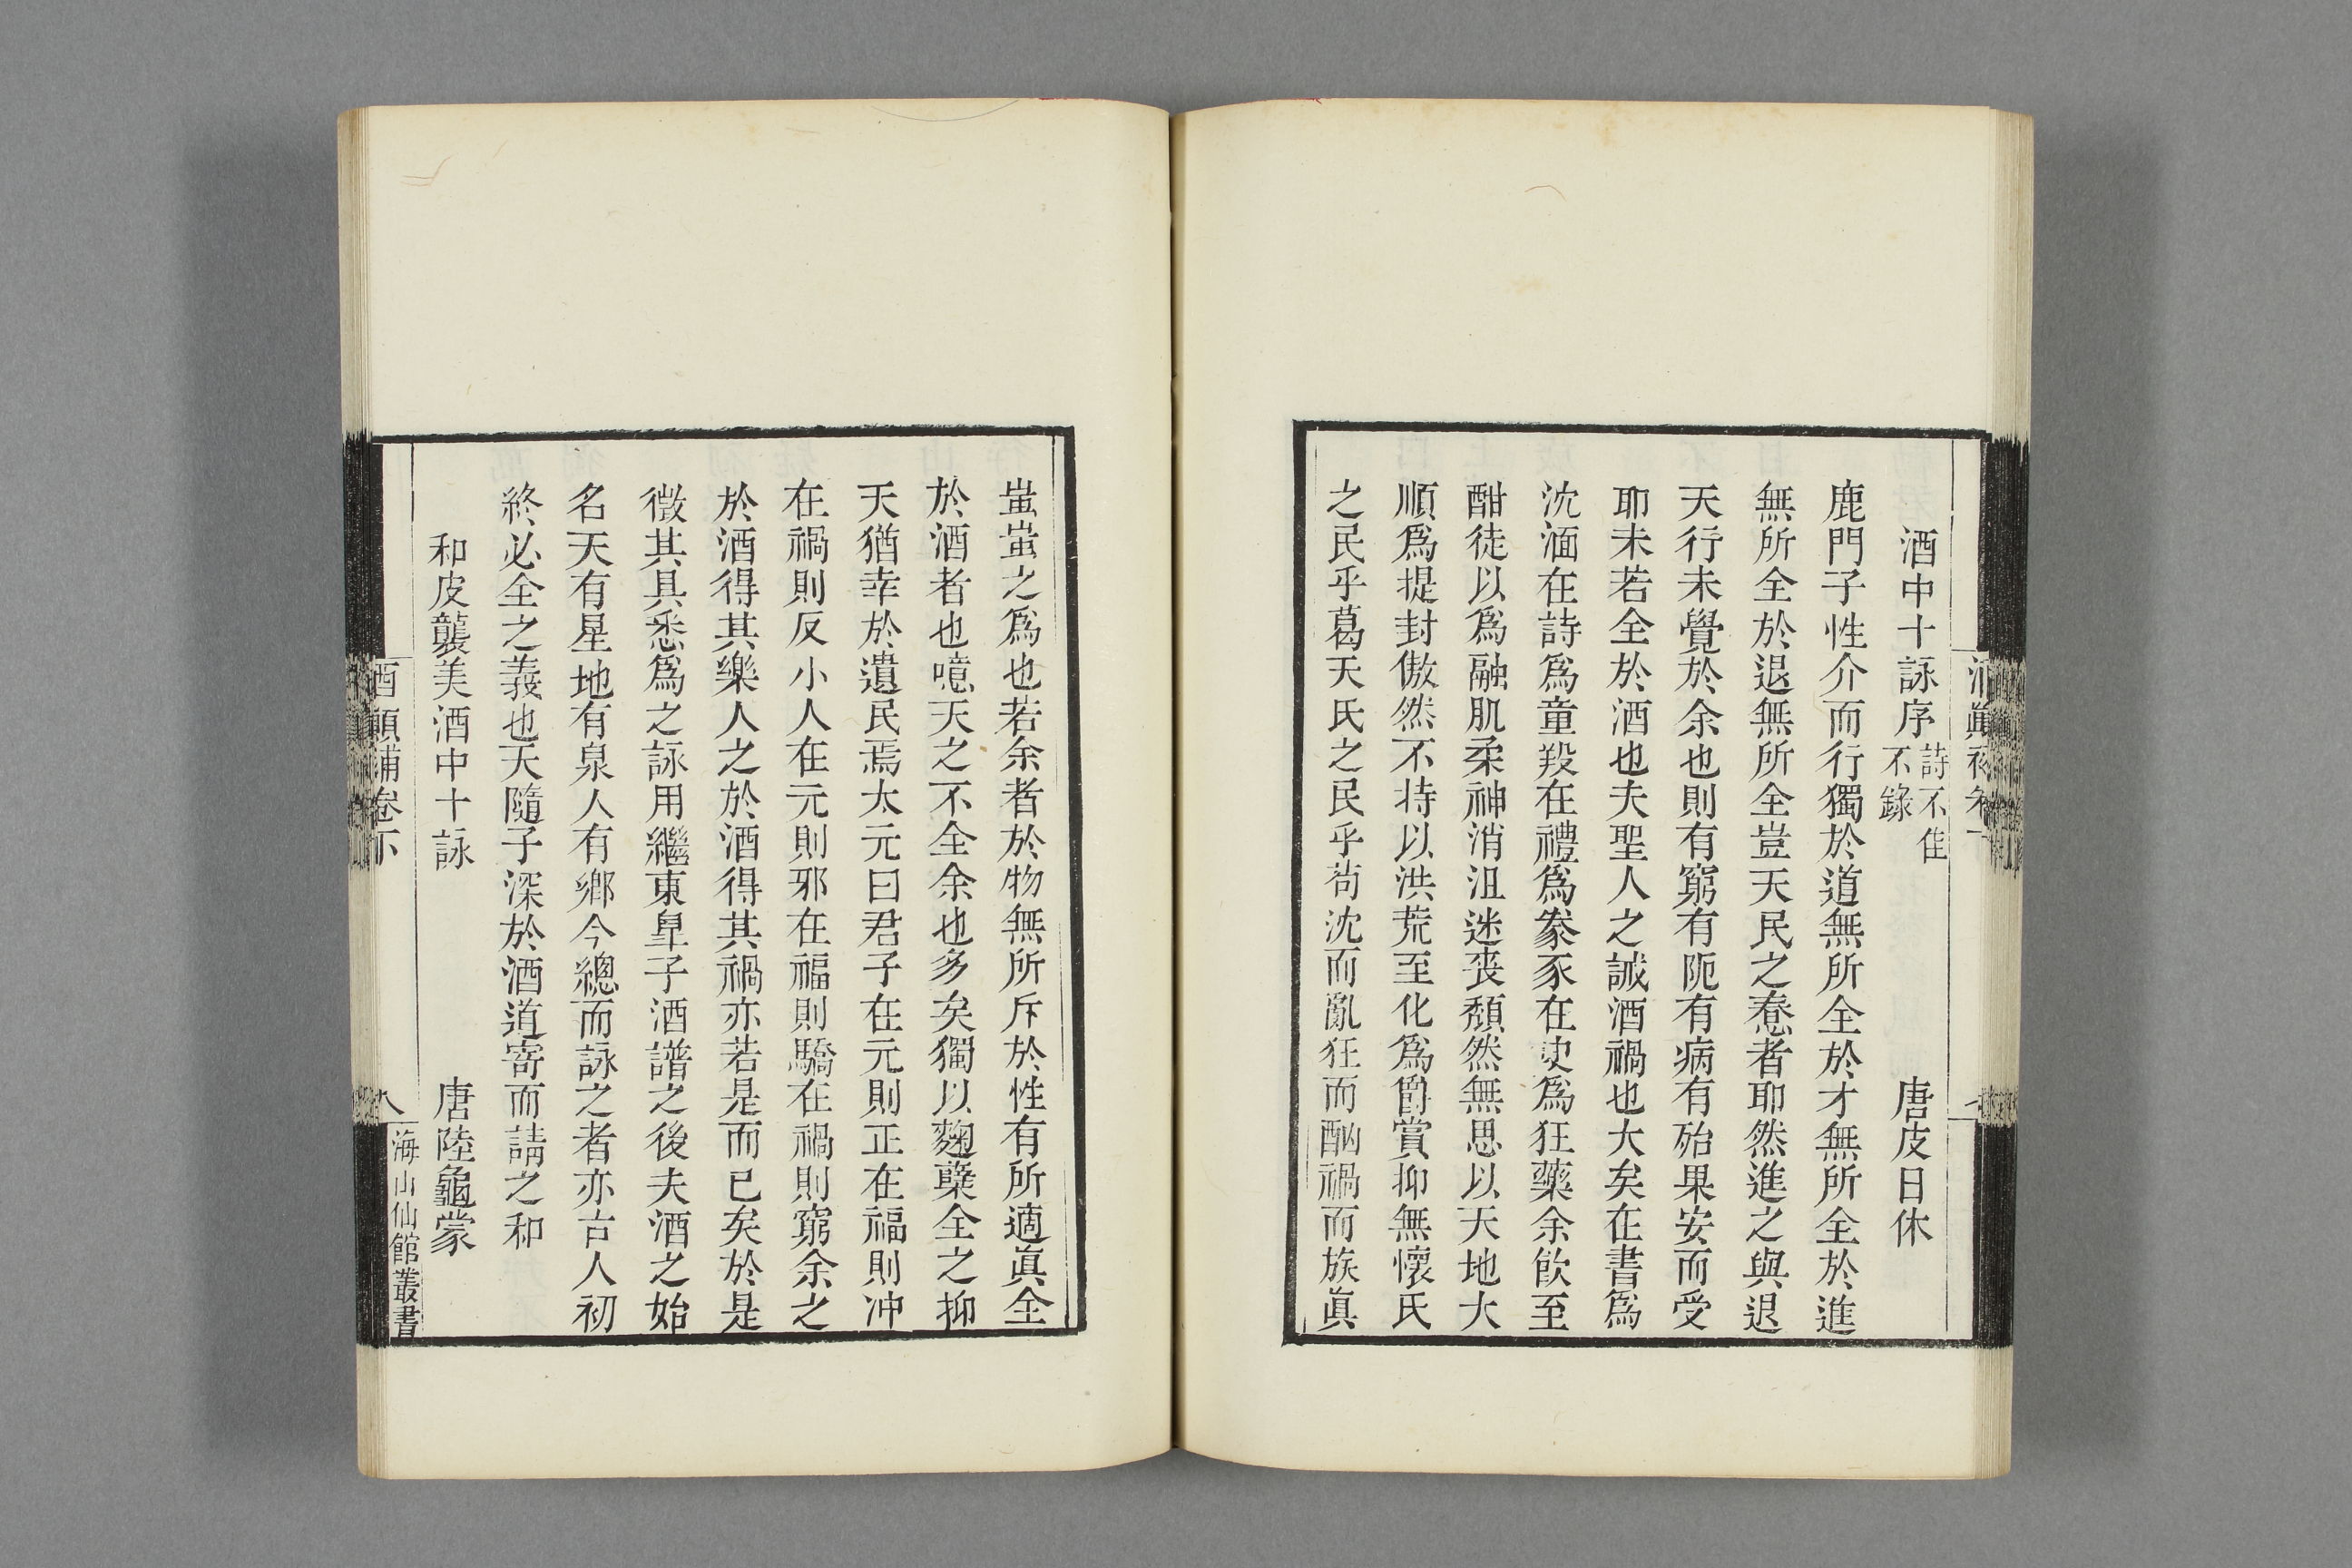 酒中十詠序 詩不佳不錄 唐皮日休
鹿門子性介而行獨於道無所全於才無所全於進
無所全於退無所全豈天民之惷者耶然進之與退
天行未覺於余也則有窮有阨有病有殆果安而受
耶未若全於酒也夫聖人之誡酒禍也大矣在書爲
沈湎在詩爲童羖在禮爲豢豕在史爲狂藥余飮至
酣徒以爲融肌柔神消沮迷喪頹然無思以天地大
順爲提封傲然不持以洪荒至化爲爵賞抑無懷氏
之民乎葛天氏之民乎苟沈而亂狂而酗禍而族眞
蚩蚩之爲也若余者於物無所斥於性有所適眞全
於酒者也噫天之不全余也多矣獨以麴蘖全之抑
天猶幸於遺民焉太元曰君子在元則正在福則冲
在禍則反小人在元則邪在福則驕在禍則窮余之
於酒得其樂人之於酒得其禍亦若是而已矣於是
徵其具悉爲之詠用繼東臯子酒譜之後夫酒之始
名天有星地有泉人有鄉今總而詠之者亦古人初
終必全之義也天隨子深於酒道寄而請之和
和皮襲美酒中十詠 唐陸龜蒙
酒顚補卷下 八 海山仙館叢書